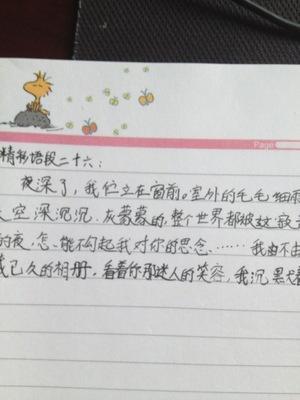 Page
精彩语段二十六：
夜深了，我伫立在窗前。室外的毛毛细雨
天空深沉沉、灰蒙蒙的，整个世界都被寂
的夜，怎能不勾起我对你的思念……我由不由
藏已久的相册，看着你那迷人的笑容，我沉默着